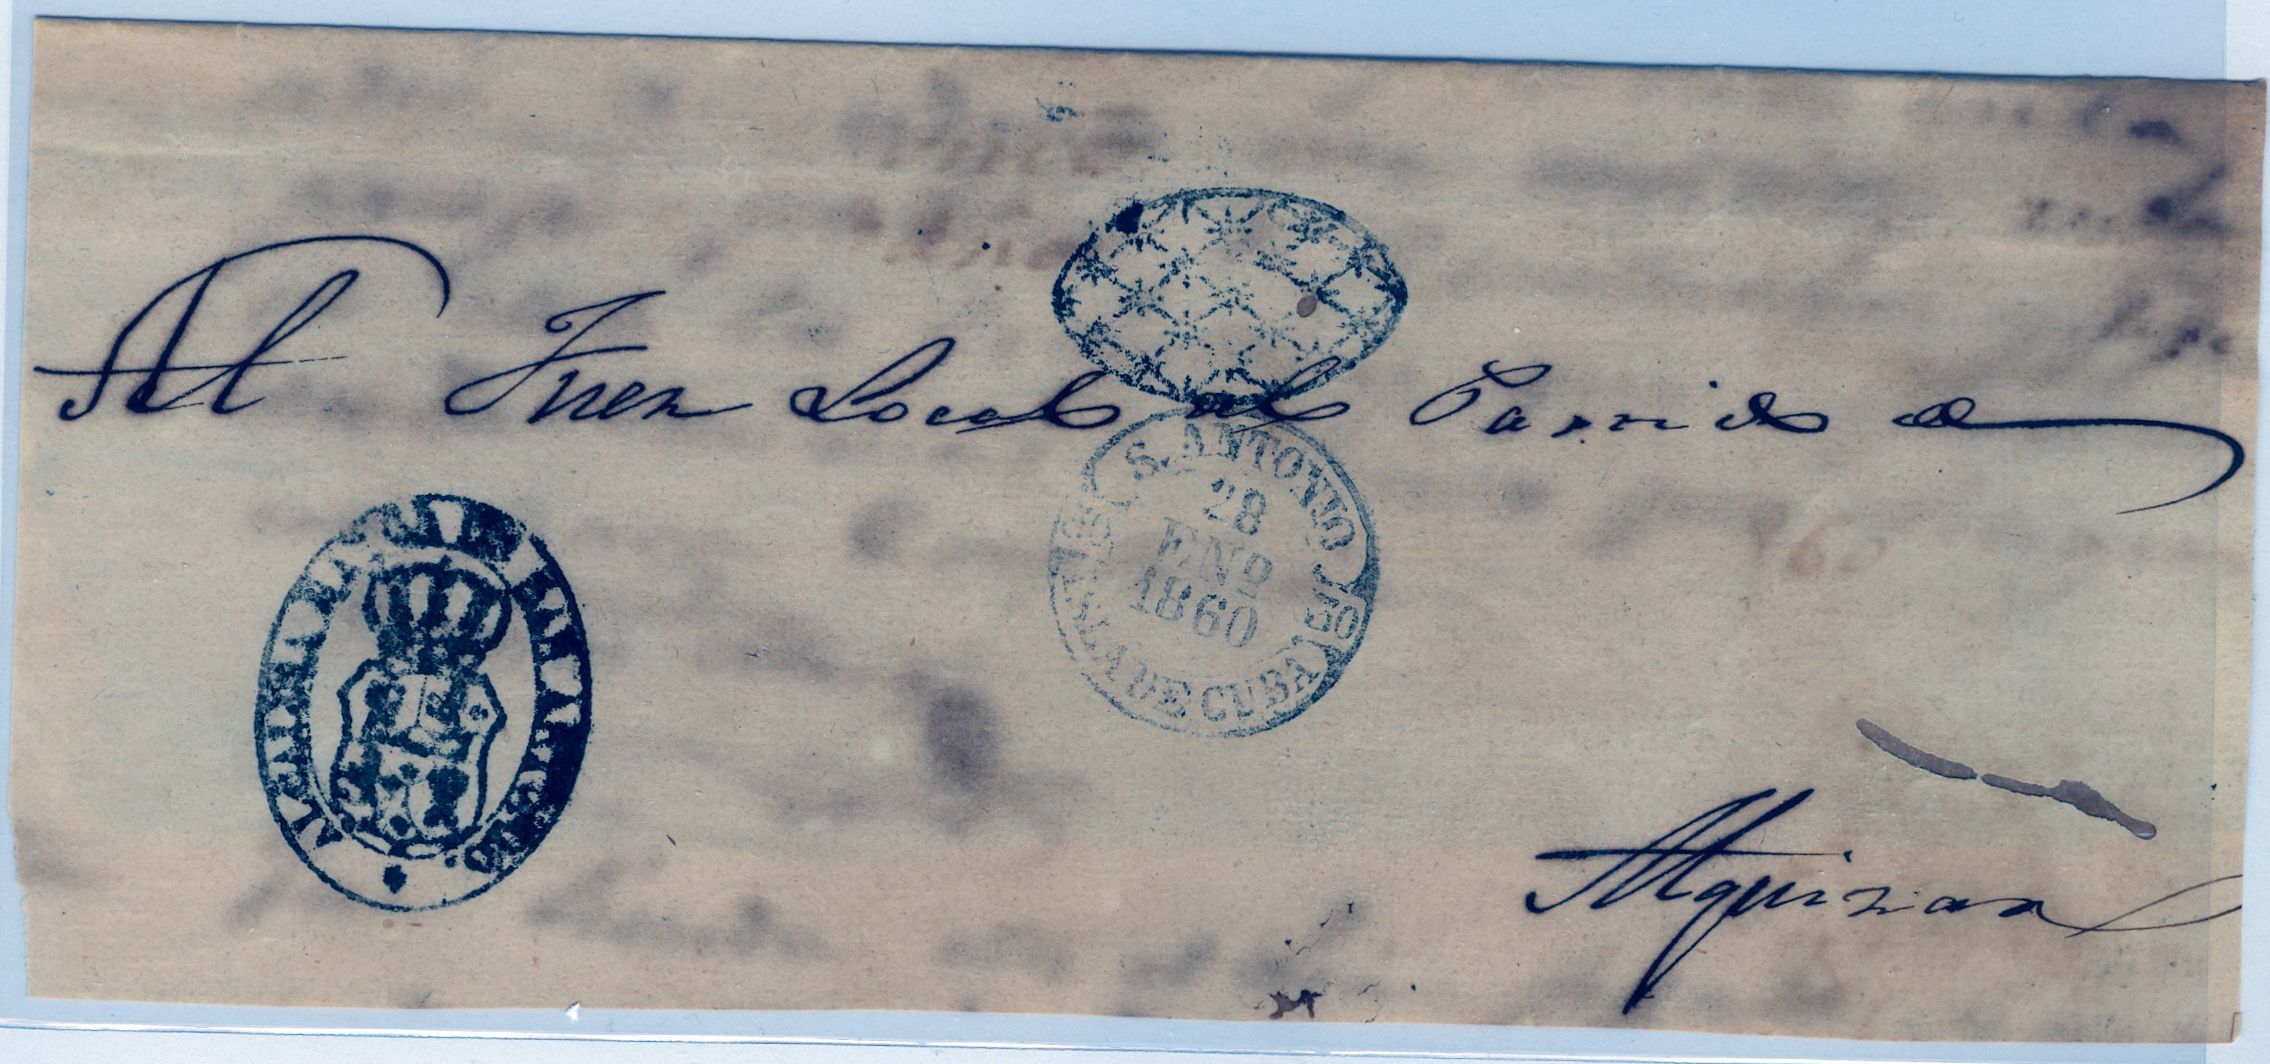 Al Juez Local del Partido de
S. ANTONIO
28
ENO
1860
ISLA DE CUBA
ALCALDIA
Alquizar